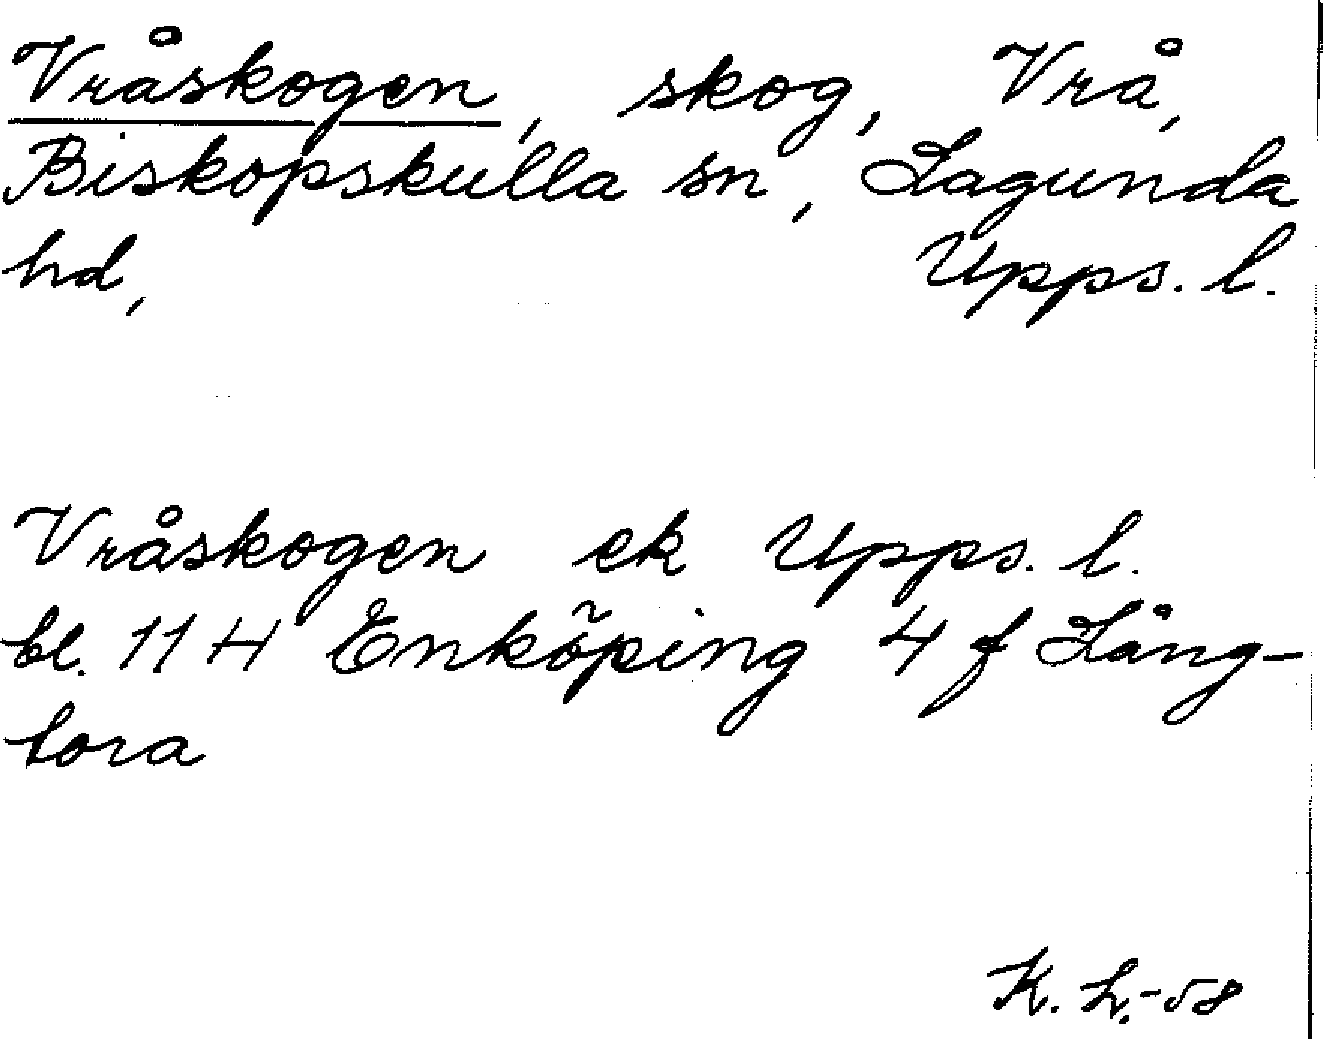 Vråskogen, skog, Vrå,
Biskopskulla sn, Lagunda
hd, Upps. l.
Vråskogen ek Upps. l.
bl. 11 H Enköping 4 f Lång-
tora
K. L.-58